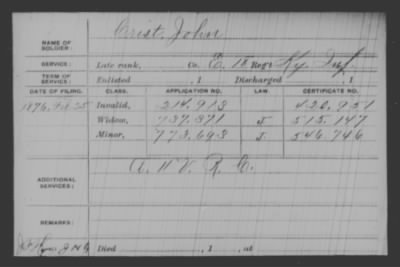 NAME OF SOLDIER: Crist, John
SERVICE: Late rank, Co. E, 15 Reg't Ky. Inf.
TERM OF SERVICE: Enlisted , 1 Discharged , 1
DATE OF FILING. CLASS. APPLICATION NO. LAW. CERTIFICATE NO.
1876, Feb. 25 Invalid, 214,913 420,951
Widow, 737,371 J 515,147
Minor, 773,693 J 546,746
ADDITIONAL SERVICES: A. H. V. R. C.
REMARKS:
Died , 1 , at